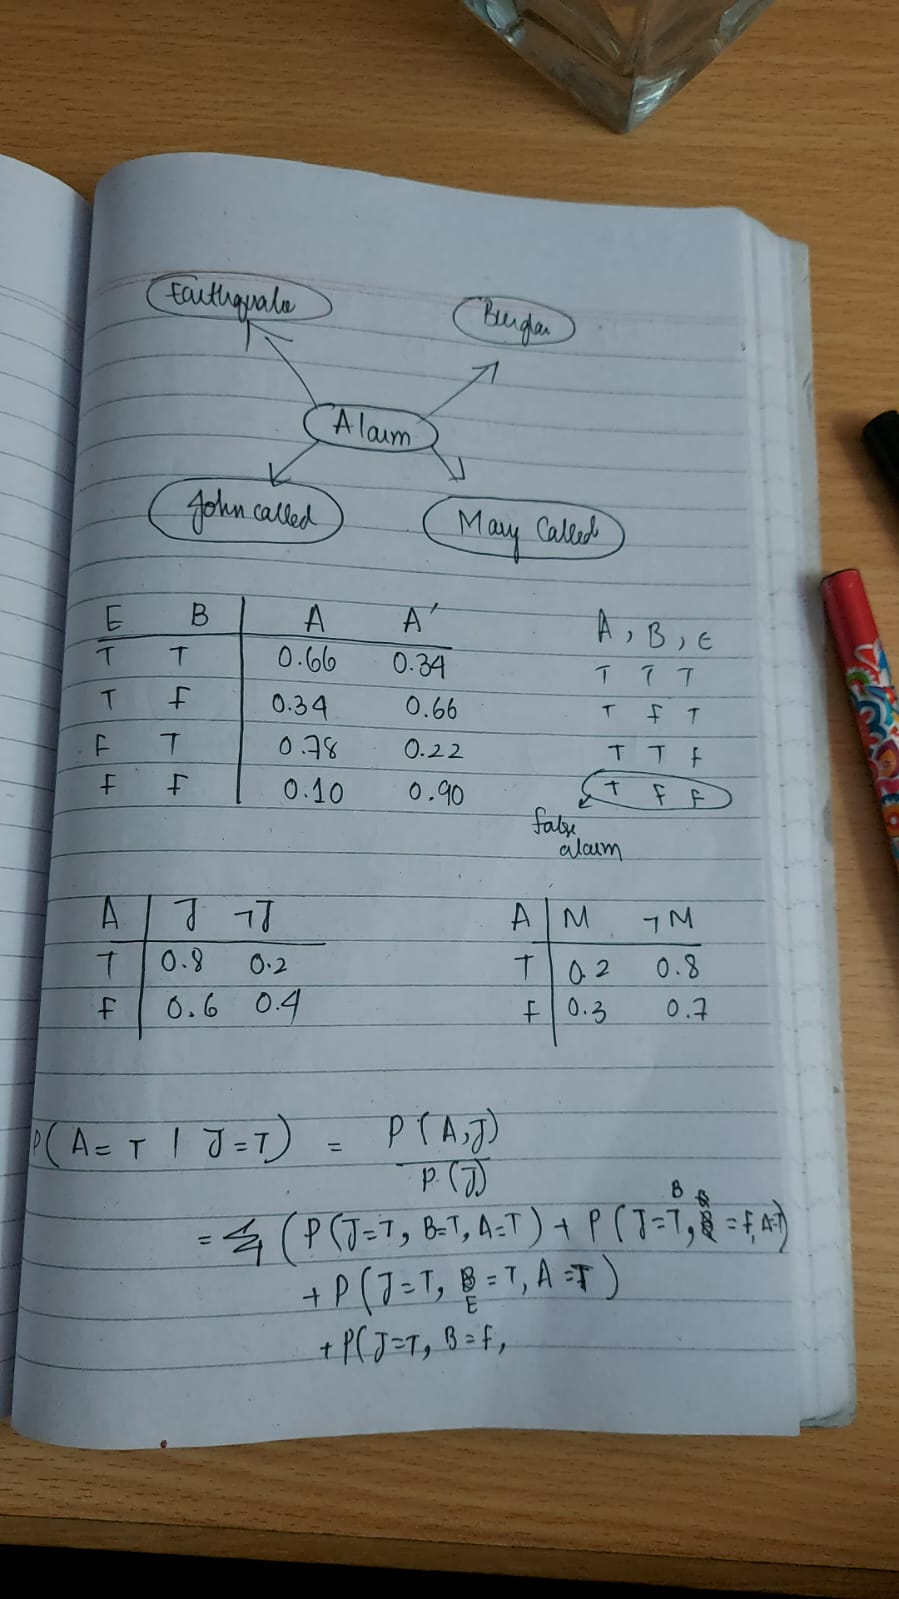 Earthquake Burglar
Alarm
John called Mary Called
E B A A′
T T 0.66 0.34
T F 0.34 0.66
F T 0.78 0.22
F F 0.10 0.90
A, B, E
T T T
T F T
T T F
T F F
false
alarm
A J ¬J
T 0.8 0.2
F 0.6 0.4
A M ¬M
T 0.2 0.8
F 0.3 0.7
P(A=T | J=T) = P(A,J)
P(J)
= (P(J=T, B=T, A=T) + P(J=T, B=F, A=T)
+ P(J=T, E=T, A=T)
+ P(J=T, B=F,